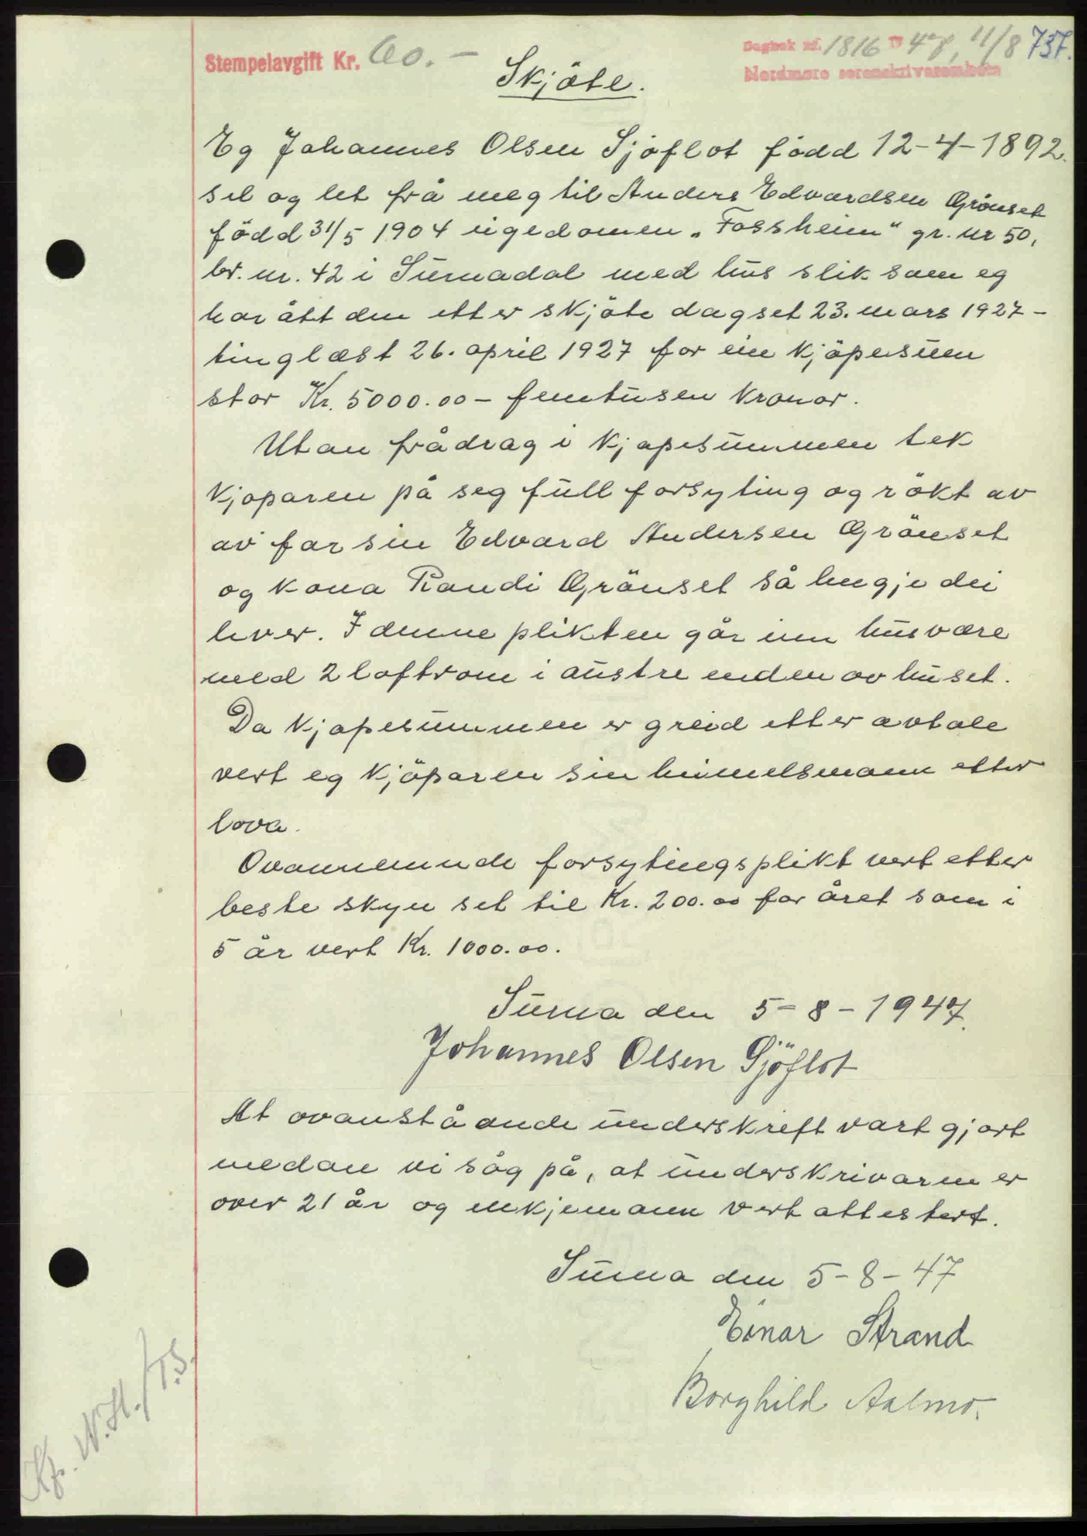 Stempelavgift Kr. 60.-
Dagbok nr. 1816 19 47, 11/8 737.
Nordmøre sorenskriverembete
Skjöte.
Eg Johannes Olsen Sjöflot född 12-4-1892.
sel og let frå meg til Anders Edvardsen Grönset
född 31/5 1904 eigedomen „Fossheim" gr. nr 50,
br. nr. 42 i Surnadal med hus slik som eg
har ått den etter skjöte dagset 23. mars 1927 -
tinglæst 26. april 1927 for ein kjöpesum
stor Kr. 5000.00 - femtusen kronor.
Utan frådrag i kjöpesummen tek
kjöparen på seg full forsyting og rökt av
av far sin Edvard Andersen Grönset
og kona Randi Grönset så lengje dei
lever. I denne plikten går inn husvære
med 2 loftrom i austre enden av huset.
Da kjöpesummen er greid etter avtale
vert eg kjöparen sin heimelsmann etter
lova.
Ovannemnde forsytingsplikt vert etter
beste skyn set til Kr. 200.00 for året som i
5 år vert Kr. 1000.00.
Surna den 5-8-1947.
Johannes Olsen Sjöflot
At ovanståande underskrift vart gjort
medan vi såg på, at underskrivaren er
over 21 år og enkjemann vert attestert.
Surna den 5-8-47
Einar Strand
Borghild Aalmo.
Kf. N.H./T.S.